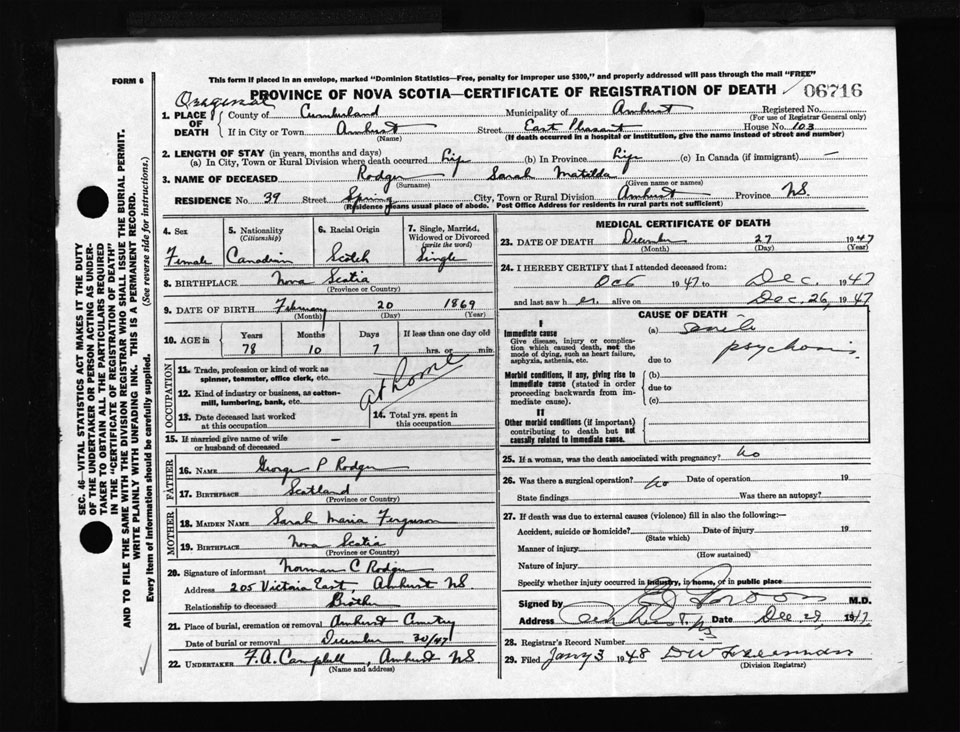 FORM 6
This form if placed in an envelope, marked "Dominion Statistics—Free, penalty for improper use $300," and properly addressed will pass through the mail "FREE"
PROVINCE OF NOVA SCOTIA—CERTIFICATE OF REGISTRATION OF DEATH 06716
1. PLACE OF DEATH { County of Cumberland Municipality of Amherst Registered No.
(For use of Registrar General only)
If in City or Town Amherst Street East Pleasant House No. 103
(Name) (If death occurred in a hospital or institution, give the name instead of street and number)
2. LENGTH OF STAY (in years, months and days)
(a) In City, Town or Rural Division where death occurred Life (b) In Province Life (c) In Canada (if immigrant) —
3. NAME OF DECEASED Rodger Sarah Matilda
(Surname) (Given name or names)
RESIDENCE No. 39 Street Spring City, Town or Rural Division Amherst Province N.S.
(Residence means usual place of abode. Post Office Address for residents in rural parts not sufficient)
4. Sex 5. Nationality (Citizenship) 6. Racial Origin 7. Single, Married, Widowed or Divorced (write the word)
Female Canadian Scotch Single
8. BIRTHPLACE Nova Scotia
(Province or Country)
9. DATE OF BIRTH February 20 1869
(Month) (Day) (Year)
10. AGE in Years Months Days If less than one day old
78 10 7 hrs. or min.
OCCUPATION
11. Trade, profession or kind of work as spinner, teamster, office clerk, etc. at home
12. Kind of industry or business, as cotton-mill, lumbering, bank, etc.
13. Date deceased last worked at this occupation 14. Total yrs. spent in this occupation
15. If married give name of wife or husband of deceased —
FATHER
16. NAME George P Rodger
17. BIRTHPLACE Scotland
(Province or Country)
MOTHER
18. MAIDEN NAME Sarah Maria Ferguson
19. BIRTHPLACE Nova Scotia
(Province or Country)
20. Signature of informant Norman C Rodger
Address 205 Victoria East, Amherst NS
Relationship to deceased Brother
21. Place of burial, cremation or removal Amherst Cemetery
Date of burial or removal December 30/47
22. UNDERTAKER F.A. Campbell, Amherst NS.
(Name and address)
MEDICAL CERTIFICATE OF DEATH
23. DATE OF DEATH December 27 1947
(Month) (Day) (Year)
24. I HEREBY CERTIFY that I attended deceased from:
1947 to Dec. 1947
and last saw h er alive on Dec. 26, 1947
CAUSE OF DEATH
I
Immediate cause (a) senile
Give disease, injury or complication which caused death, not the mode of dying, such as heart failure, asphyxia, asthenia, etc. psychosis
due to
Morbid conditions, if any, giving rise to immediate cause (stated in order proceeding backwards from immediate cause). (b)
due to
(c)
II
Other morbid conditions (if important) contributing to death but not causally related to immediate cause.
25. If a woman, was the death associated with pregnancy? No
26. Was there a surgical operation? No Date of operation 19
State findings Was there an autopsy?
27. If death was due to external causes (violence) fill in also the following:—
Accident, suicide or homicide? Date of injury 19
(State which)
Manner of injury
(How sustained)
Nature of injury
Specify whether injury occurred in industry, in home, or in public place
Signed by M.D.
Address Amherst, N.S. Date Dec 29, 1947
28. Registrar's Record Number
29. Filed Jany 3 1948
(Division Registrar)
SEC. 46—VITAL STATISTICS ACT MAKES IT THE DUTY
OF THE UNDERTAKER OR PERSON ACTING AS UNDER-
TAKER TO OBTAIN ALL THE PARTICULARS REQUIRED
IN THE "CERTIFICATE OF REGISTRATION OF DEATH"
AND TO FILE THE SAME WITH THE DIVISION REGISTRAR WHO SHALL ISSUE THE BURIAL PERMIT.
WRITE PLAINLY WITH UNFADING INK. THIS IS A PERMANENT RECORD.
Every item of Information should be carefully supplied. (See reverse side for instructions.)